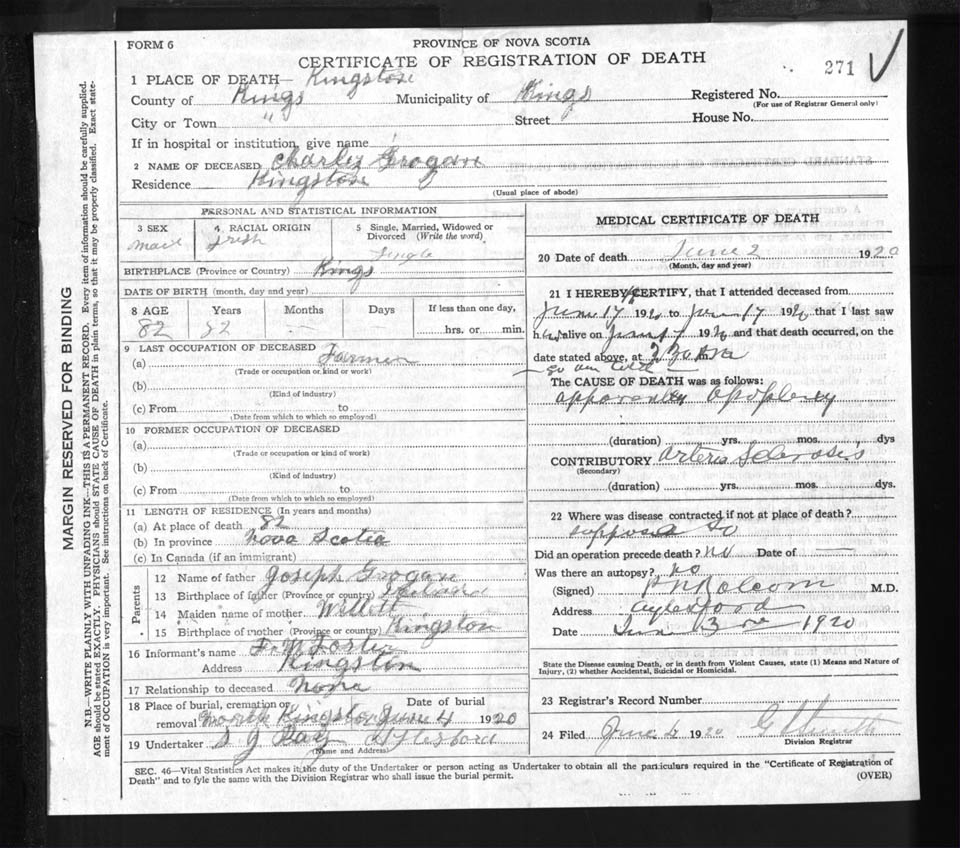 FORM 6
PROVINCE OF NOVA SCOTIA
CERTIFICATE OF REGISTRATION OF DEATH
271
1 PLACE OF DEATH— Kingston
County of Kings Municipality of Kings Registered No.
(For use of Registrar General only)
City or Town " Street House No.
If in hospital or institution, give name
2 NAME OF DECEASED Charles Grogan
Residence Kingston
(Usual place of abode)
PERSONAL AND STATISTICAL INFORMATION
3 SEX 4. RACIAL ORIGIN 5 Single, Married, Widowed or Divorced (Write the word)
male Irish Single
BIRTHPLACE (Province or Country) Kings
DATE OF BIRTH (month, day and year)
8 AGE Years Months Days If less than one day,
82 82 — hrs. or min.
9 LAST OCCUPATION OF DECEASED
(a) Farmer
(Trade or occupation or kind or work)
(b)
(Kind of industry)
(c) From to
(Date from which to which so employed)
10 FORMER OCCUPATION OF DECEASED
(a)
(Trade or occupation or kind of work)
(b)
(Kind of industry)
(c) From to
(Date from which to which so employed)
11 LENGTH OF RESIDENCE (In years and months)
(a) At place of death 82
(b) In province Nova Scotia
(c) In Canada (if an immigrant)
Parents
12 Name of father Joseph Grogan
13 Birthplace of father (Province or country) Ireland
14 Maiden name of mother Willett
15 Birthplace of mother (Province or country) Kingston
16 Informant's name Foster
Address Kingston
17 Relationship to deceased None
18 Place of burial, cremation or removal North Kingston Date of burial June 4 1920
19 Undertaker Aylesford
(Name and Address)
MEDICAL CERTIFICATE OF DEATH
20 Date of death June 2 1920
(Month, day and year)
21 I HEREBY CERTIFY, that I attended deceased from
June 17 192 to 17 192 that I last saw
h alive on 17 192 and that death occurred, on the
date stated above, at
The CAUSE OF DEATH was as follows:
apparently apoplexy
(duration) yrs. mos. dys
CONTRIBUTORY Arterio Sclerosis
(Secondary)
(duration) yrs. mos. dys.
22 Where was disease contracted if not at place of death?
suppose so
Did an operation precede death? no Date of —
Was there an autopsy? no
(Signed) Balcom M.D.
Address Aylesford
Date June 3rd 1920
State the Disease causing Death, or in death from Violent Causes, state (1) Means and Nature of Injury, (2) whether Accidental, Suicidal or Homicidal.
23 Registrar's Record Number
24 Filed June 4 1920
Division Registrar
SEC. 46—Vital Statistics Act makes it the duty of the Undertaker or person acting as Undertaker to obtain all the particulars required in the "Certificate of Registration of
Death" and to fyle the same with the Division Registrar who shall issue the burial permit. (OVER)
MARGIN RESERVED FOR BINDING
N.B.—WRITE PLAINLY WITH UNFADING INK—THIS IS A PERMANENT RECORD. Every item of information should be carefully supplied.
AGE should be stated EXACTLY. PHYSICIANS should STATE CAUSE OF DEATH in plain terms, so that it may be properly classified. Exact state-
ment of OCCUPATION is very important. See instructions on back of Certificate.